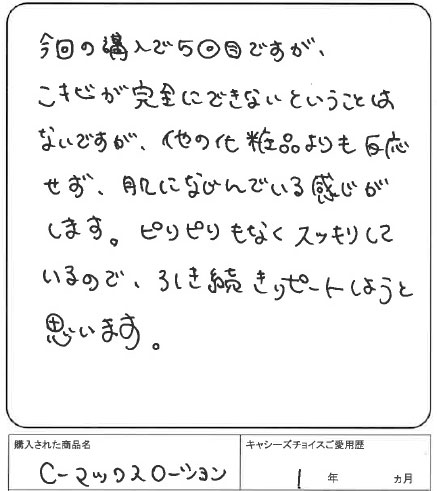 今回の購入で5回目ですが、
ニキビが完全にできないということは
ないですが、他の化粧品よりも反応
せず、肌になじんでいる感じが
します。ピリピリもなくスッキリして
いるので、引き続きリピートしようと
思います。
購入された商品名
C-マックスローション
キャシーズチョイスご愛用歴
1 年 ヵ月